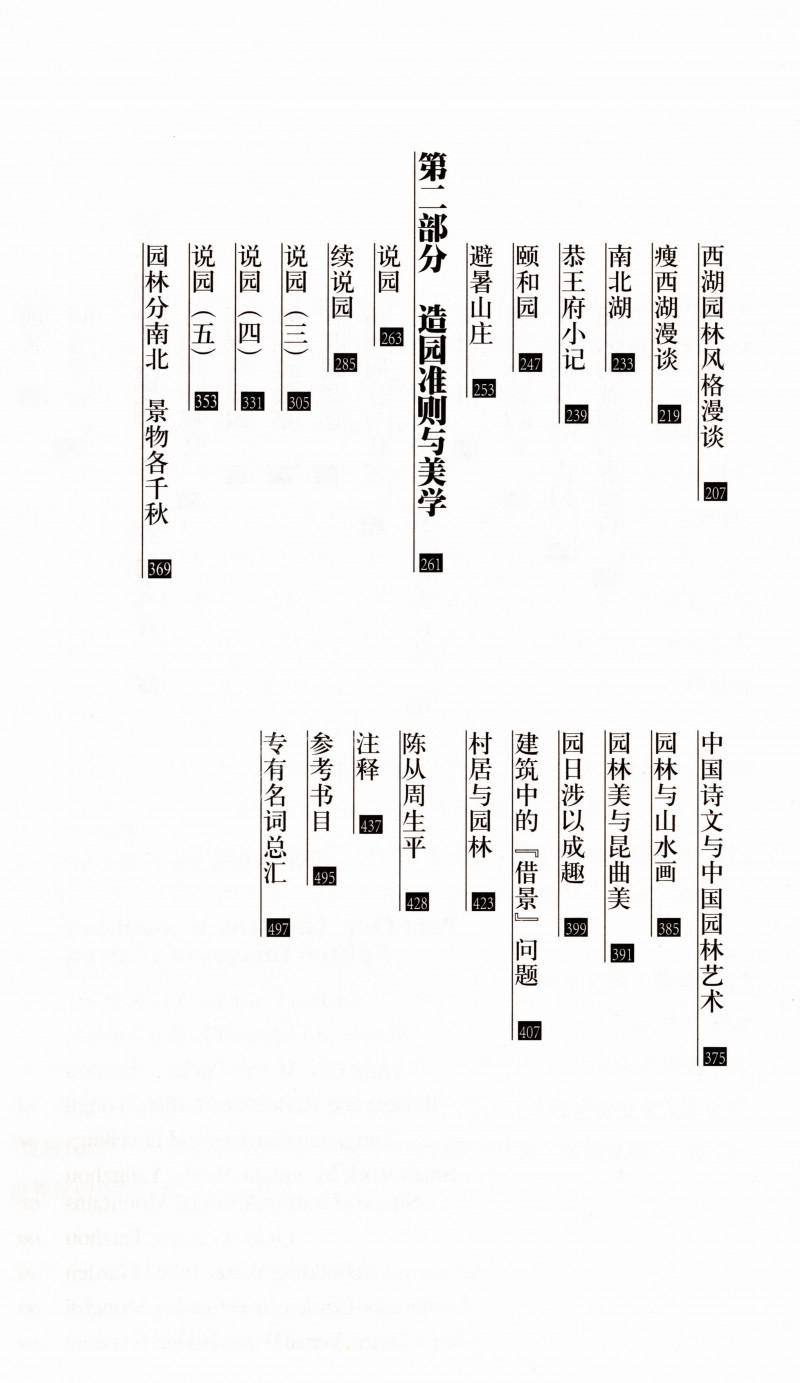 西湖园林风格漫谈 207
瘦西湖漫谈 219
南北湖 233
恭王府小记 239
颐和园 247
避暑山庄 253
第二部分 造园准则与美学 261
说园 263
续说园 285
说园（三） 305
说园（四） 331
说园（五） 353
园林分南北 景物各千秋 369
中国诗文与中国园林艺术 375
园林与山水画 385
园林美与昆曲美 391
园日涉以成趣 399
建筑中的『借景』问题 407
村居与园林 423
陈从周生平 428
注释 437
参考书目 495
专有名词总汇 497